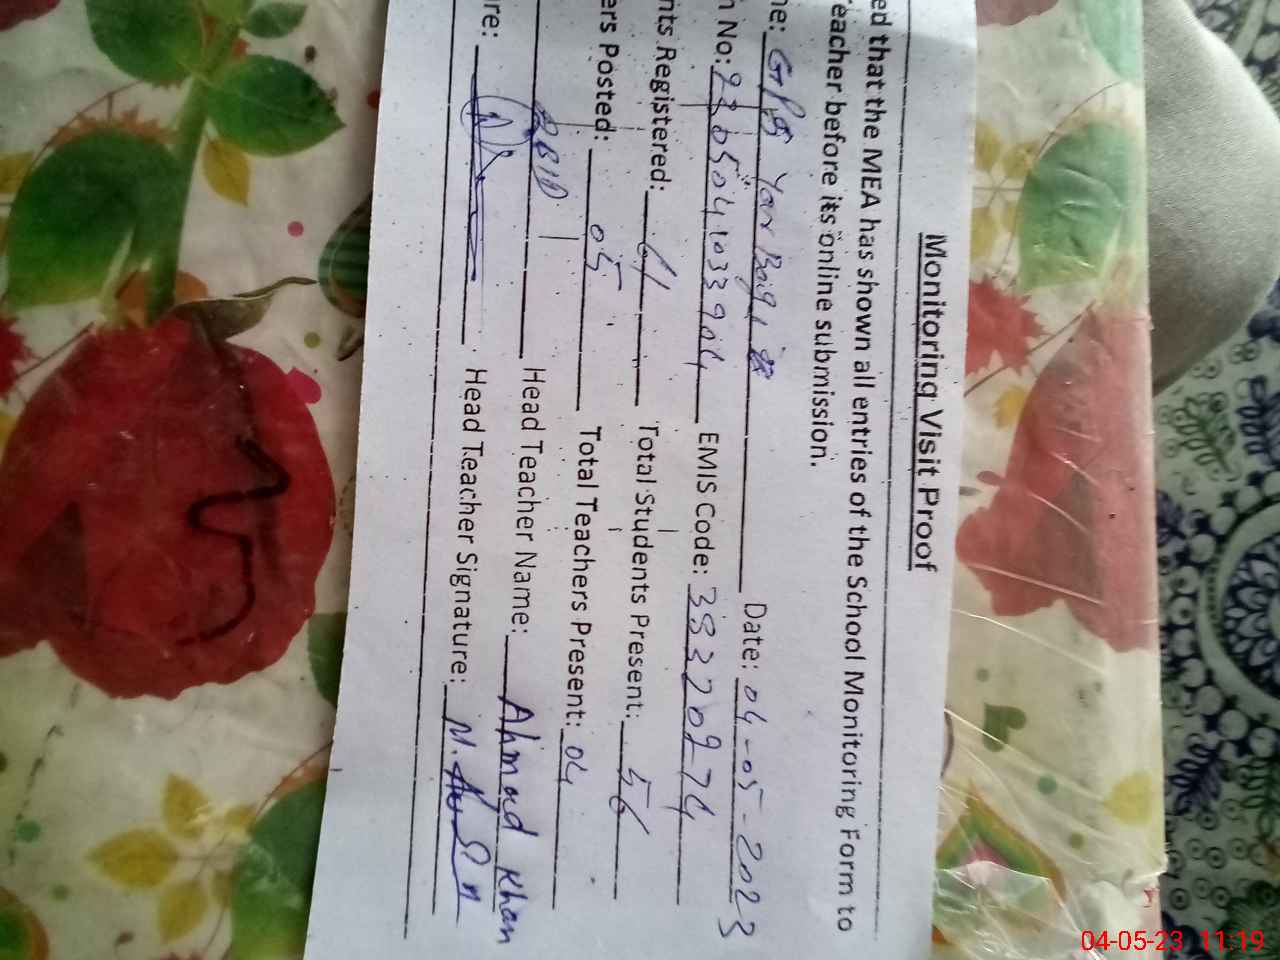 Monitoring Visit Proof
ed that the MEA has shown all entries of the School Monitoring Form to
eacher before its online submission.
ne: GPS Yar Baig Date: 04-05-2023
n No: EMIS Code: 38320274
nts Registered: 61 Total Students Present: 56
ers Posted: 05 Total Teachers Present: 04
ABID Head Teacher Name: Ahmad Khan
re: Head Teacher Signature:
04-05-23 11:19